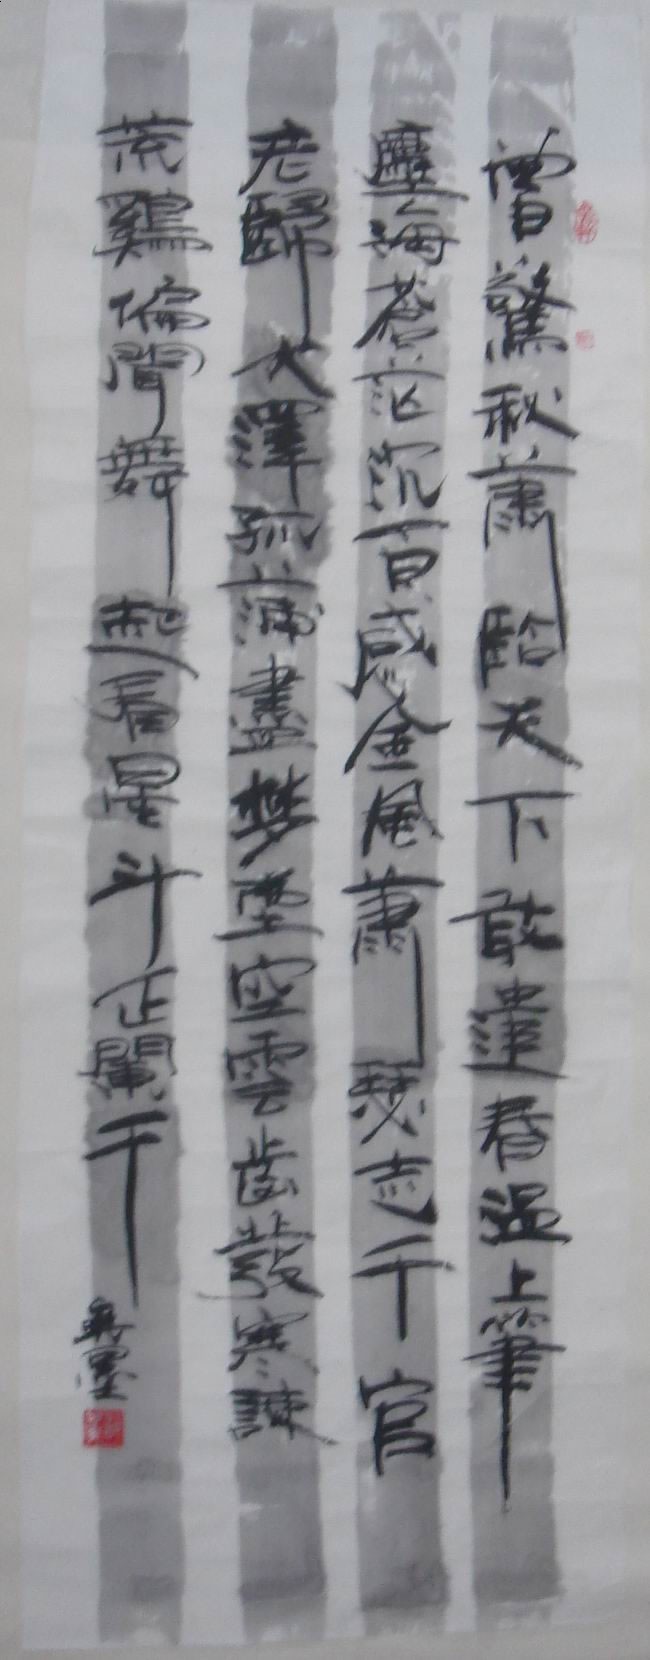 曾驚秋蕭臨天下敢遣春温上筆
塵海蒼茫沉百感金風蕭瑟走千官
老歸大澤孤蒲盡夢墜空雲齒發寒竦
荒鷄偏間舞起看星斗正闌干
墨